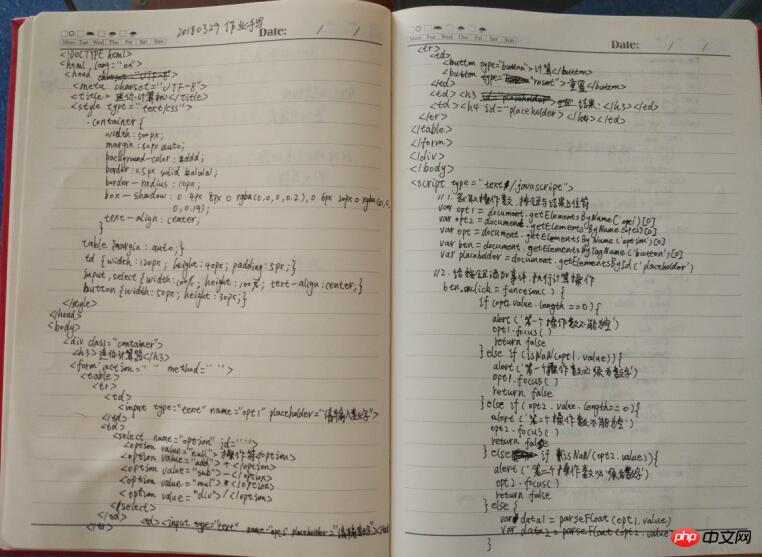 20180329 作业手写
Date: / /
Mon Tue Wed Thu Fri Sat Sun
<!DOCTYPE html>
<html lang="en">
<head charset="UTF-8">
<meta charset="UTF-8">
<title>迷你计算机</title>
<style type="text/css">
.container {
width: 500px;
margin: 50px auto;
background-color: #ddd;
border: 0.5px solid #a1a1a1;
border-radius: 10px;
box-shadow: 0 4px 8px 0 rgba(0,0,0,0.2), 0 6px 20px 0 rgba(0,0,
0,0.19);
text-align: center;
}
table {margin: auto;}
td {width: 120px; height: 40px; padding: 5px;}
input, select {width: 100%; height: 100%; text-align: center;}
button {width: 50px; height: 30px;}
</style>
</head>
<body>
<div class="container">
<h3>迷你计算器</h3>
<form action=" " method=" ">
<table>
<tr>
<td>
<input type="text" name="opt1" placeholder="请输入数字">
</td>
<td>
<select name="option" id=" ">
<option value="null">操作符<option>
<option value="add">+</option>
<option value="sub">-</option>
<option value="mul">*</option>
<option value="div">/</option>
</select>
</td>
<td><input type="text" name="opt2" placeholder="请输入数字"></td>
</tr>
Date: / /
Mon Tue Wed Thu Fri Sat Sun
<tr>
<td>
<button type="button">计算</button>
<button type="reset">重置</button>
</td>
<td><h3>结果:</h3></td>
<td><h4 id="placeholder"></h4></td>
</tr>
</table>
</form>
</div>
</body>
<script type="text/javascript">
//1.获取操作数,按钮与结果占位符
var opt1 = document.getElementsByName('opt1')[0]
var opt2 = document.getElementsByName(opt2)[0]
var opt = document.getElementsByName('option')[0]
var btn = document.getElementsByTagName('button')[0]
var placeholder = document.getElementsById('placeholder')
//2.给按钮添加事件,执行计算操作
btn.onclick = function() {
if (opt1.value.length == 0) {
alert('第一个操作数不能为空')
opt1.focus()
return false
} else if (isNaN(opt1.value)) {
alert('第一个操作数必须为数字')
opt1.focus()
return false
} else if (opt2.value.length == 0) {
alert('第二个操作数不能为空')
opt2.focus()
return false
} else if (isNaN(opt2.value)){
alert('第二个操作数必须为数字')
opt2.focus()
return false
} else {
var data1 = parseFloat(opt1.value)
var data2 = parseFloat(opt2.value
}
php 中文网